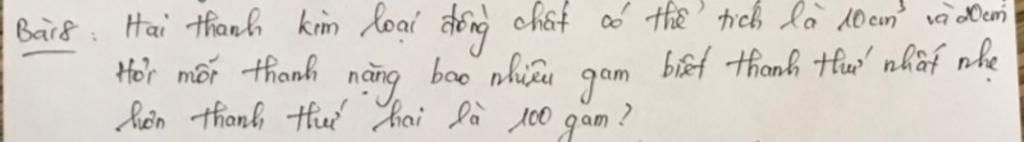 Bài 8: Hai thanh kim loại đồng chất có thể tích là 10cm³ và 20cm³
Hỏi mỗi thanh nặng bao nhiêu gam biết thanh thứ nhất nhẹ
hơn thanh thứ hai là 100 gam?